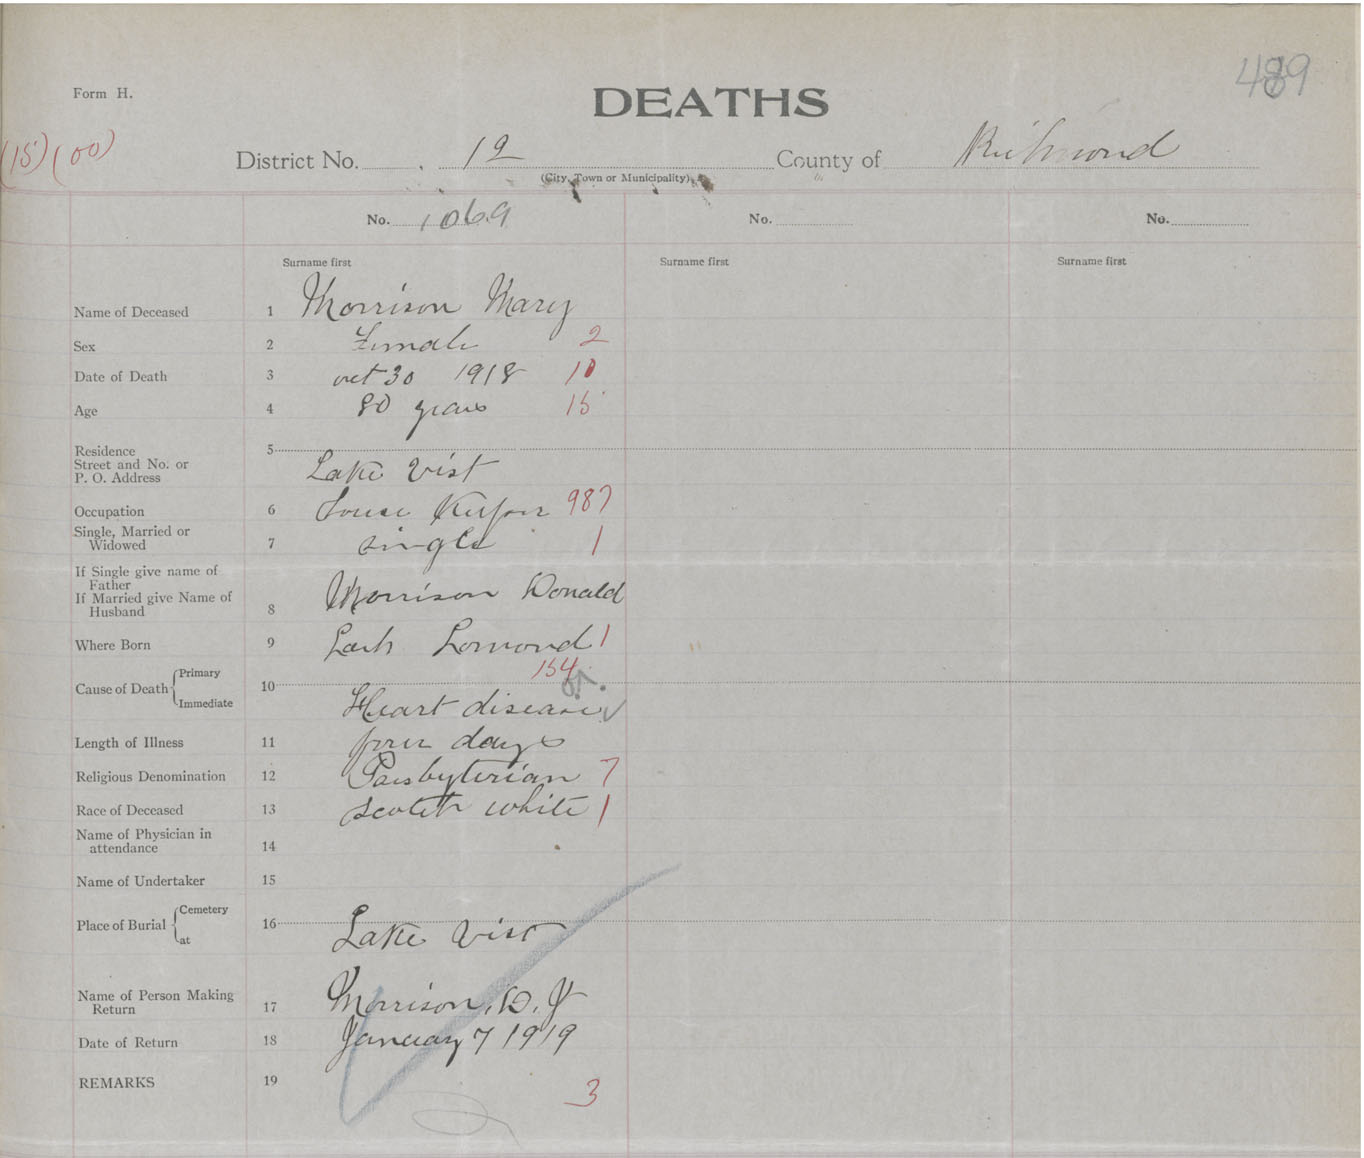 489
Form H.
DEATHS
(15) (00)
District No. 12 County of Richmond
(City, Town or Municipality)
No. 1069 No. No.
Surname first Surname first Surname first
Name of Deceased 1 Morrison Mary
Sex 2 Female 2
Date of Death 3 oct 30 1918 10
Age 4 80 years 15
Residence 5
Street and No. or
P. O. Address Lake Vist
Occupation 6 House Keeper 987
Single, Married or
Widowed 7 single 1
If Single give name of
Father
If Married give Name of
Husband 8 Morrison Donald
Where Born 9 Loch Lomond 1
154
Cause of Death { Primary 10
Immediate Heart disease
Length of Illness 11 four days
Religious Denomination 12 Presbyterian 7
Race of Deceased 13 Scotch white 1
Name of Physician in
attendance 14
Name of Undertaker 15
Place of Burial { Cemetery 16
at Lake Vist
Name of Person Making
Return 17 Morrison, D. J
Date of Return 18 January 7 1919
REMARKS 19 3